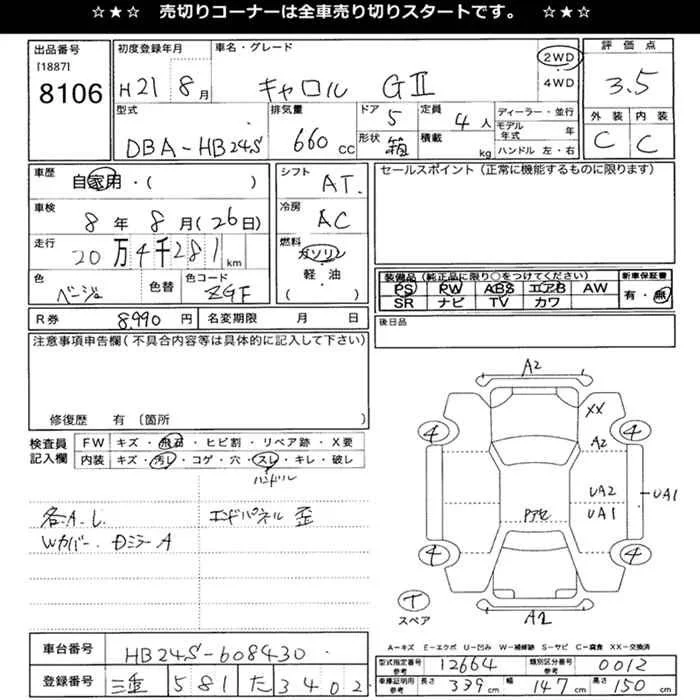 ☆ ★ ☆ 売切りコーナーは全車売り切りスタートです。 ☆ ★ ☆
出品番号
[1887]
8106
初度登録年月
H21 8月
車名・グレード
キャロル GⅡ
2WD
4WD
評価点
3.5
外装 内装
C C
型式
DBA-HB24S
排気量
660cc
ドア 5
形状 箱
定員 4人
積載 kg
ディーラー・並行
モデル年式 年
ハンドル 左・右
車歴
自家用・( )
車検
8年 8月(26日)
走行
20万4千281km
色
ベージュ
色替
色コード
ZGF
シフト
AT.
冷房
AC
燃料
ガソリン
軽・油
( )
セールスポイント(正常に機能するものに限ります)
装備品(純正品に限り○をつけてください)
PS PW ABS エアB AW
SR ナビ TV カワ
新車保証書
有・無
R券 8,990円
名変期限 月 日
後日品
注意事項申告欄(不具合内容等は具体的に記入して下さい)
修復歴 有〔箇所 〕
検査員記入欄
FW キズ・飛石・ヒビ割・リペア跡・X要
内装 キズ・汚レ・コゲ・穴・スレ・キレ・破レ
ハンドル
各A.L.
Wカバー. DミラーA
エンドパネル 歪
A2
XX
4 4
A2
UA2
UA1
UA1
アセ
4 4
T
スペア
A2
A-キズ E-エクボ U-凹み W-補修跡 S-サビ C-腐食 XX-交換済
車台番号 HB24S-608430
登録番号 三重 581 た 3402
型式指定番号 参考 12664
類別区分番号 参考 0012
車庫証明用 参考 長さ 339cm 幅 147cm 高さ 150cm